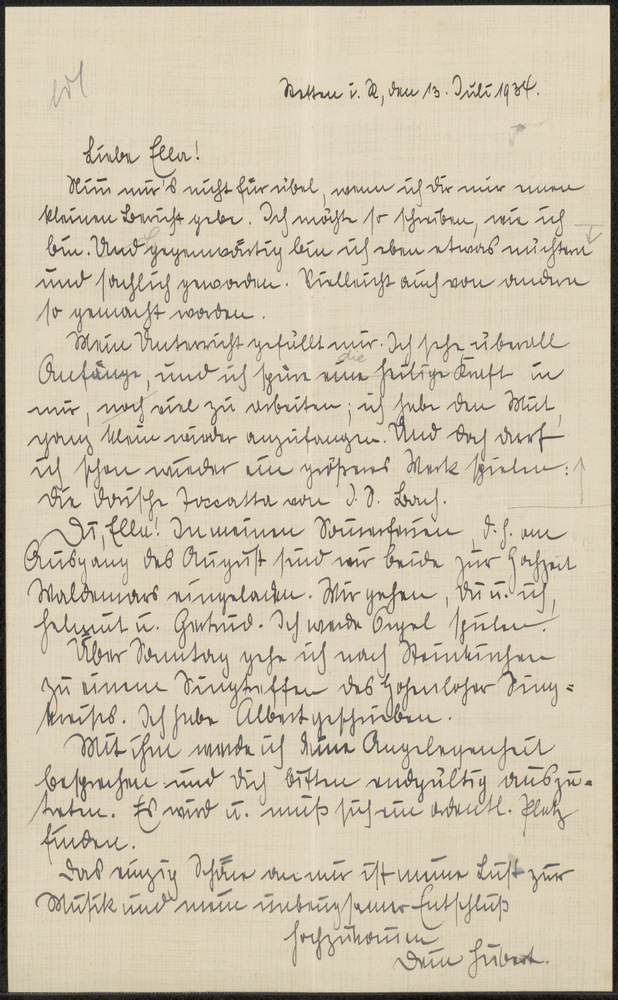 Stetten i. R, den 13. Juli 1934.
Liebe Ella!
Nimm mir's nicht für übel, wenn ich Dir nur einen
kleinen Bericht gebe. Ich möchte so schreiben, wie ich
bin. Und gegenwärtig bin ich eben etwas nüchtern
und sachlich geworden. Vielleicht auch von andern
so gemacht worden.
Mein Unterricht gefällt mir. Ich sehe überall
die
Anfänge, und ich spüre eine heilige Kraft in
mir, noch viel zu arbeiten; ich habe den Mut,
ganz klein wieder anzufangen. Und doch darf
ich schon wieder ein größeres Werk spielen:
die dorische Toccatta von J. S. Bach.
Du, Ella! In meinen Sommerferien, d. h. am
Ausgang des August sind wir beide zur Hochzeit
Waldemars eingeladen. Wir gehen, Du u. ich,
Helmut u. Gertrud. Ich werde Orgel spielen.
Über Sonntag gehe ich nach Steinkirchen
zu einem Singtreffen des Hohenloher Sing=
kreises. Ich habe Albert geschrieben.
Mit ihm werde ich Deine Angelegenheit
besprechen und Dich bitten endgültig auszu=
treten. Es wird u. muß sich ein ordentl. Platz
finden.
Das einzig Schöne an mir ist meine Lust zur
Musik und mein unbeugsamer Entschluß
hochzukommen
Dein Hubert.